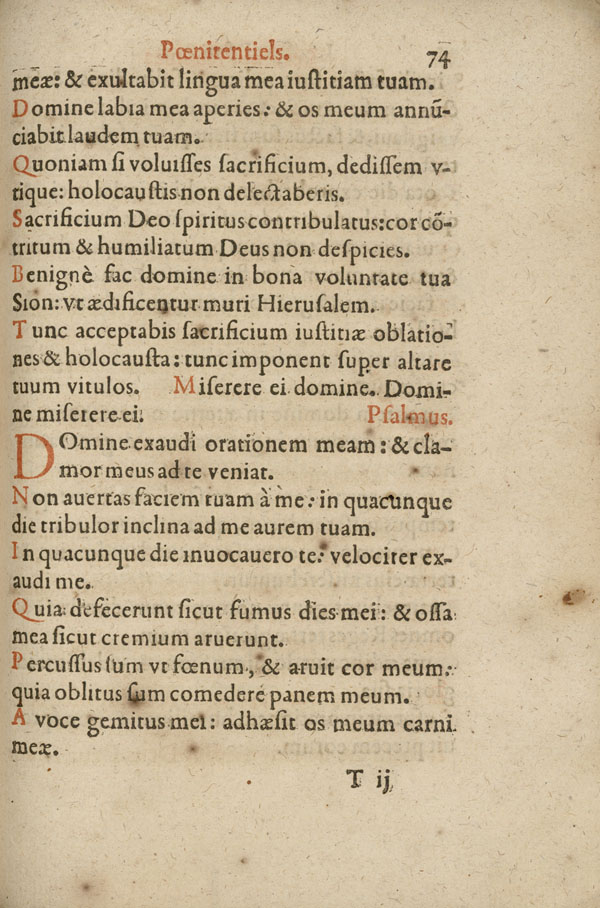 Pœnitentiels. 74
meæ: & exultabit lingua mea iustitiam tuam.
Domine labia mea aperies: & os meum annū-
ciabit laudem tuam.
Quoniam si voluisses sacrificium, dedissem v-
tique: holocaustis non delectaberis.
Sacrificium Deo spiritus contribulatus: cor cō-
tritum & humiliatum Deus non despicies.
Benignè fac domine in bona voluntate tua
Sion: vt ædificentur muri Hierusalem.
Tunc acceptabis sacrificium iustitiæ oblatio-
nes & holocausta: tunc imponent super altare
tuum vitulos. Miserere ei domine. Domi-
ne miserere ei. Psalmus.
DOmine exaudi orationem meam: & cla-
mor meus ad te veniat.
Non auertas faciem tuam à me: in quacunque
die tribulor inclina ad me aurem tuam.
In quacunque die inuocauero te: velociter ex-
audi me.
Quia defecerunt sicut fumus dies mei: & ossa
mea sicut cremium aruerunt.
Percussus sum vt fœnum, & aruit cor meum:
quia oblitus sum comedere panem meum.
A voce gemitus mei: adhæsit os meum carni
meæ.
T ij